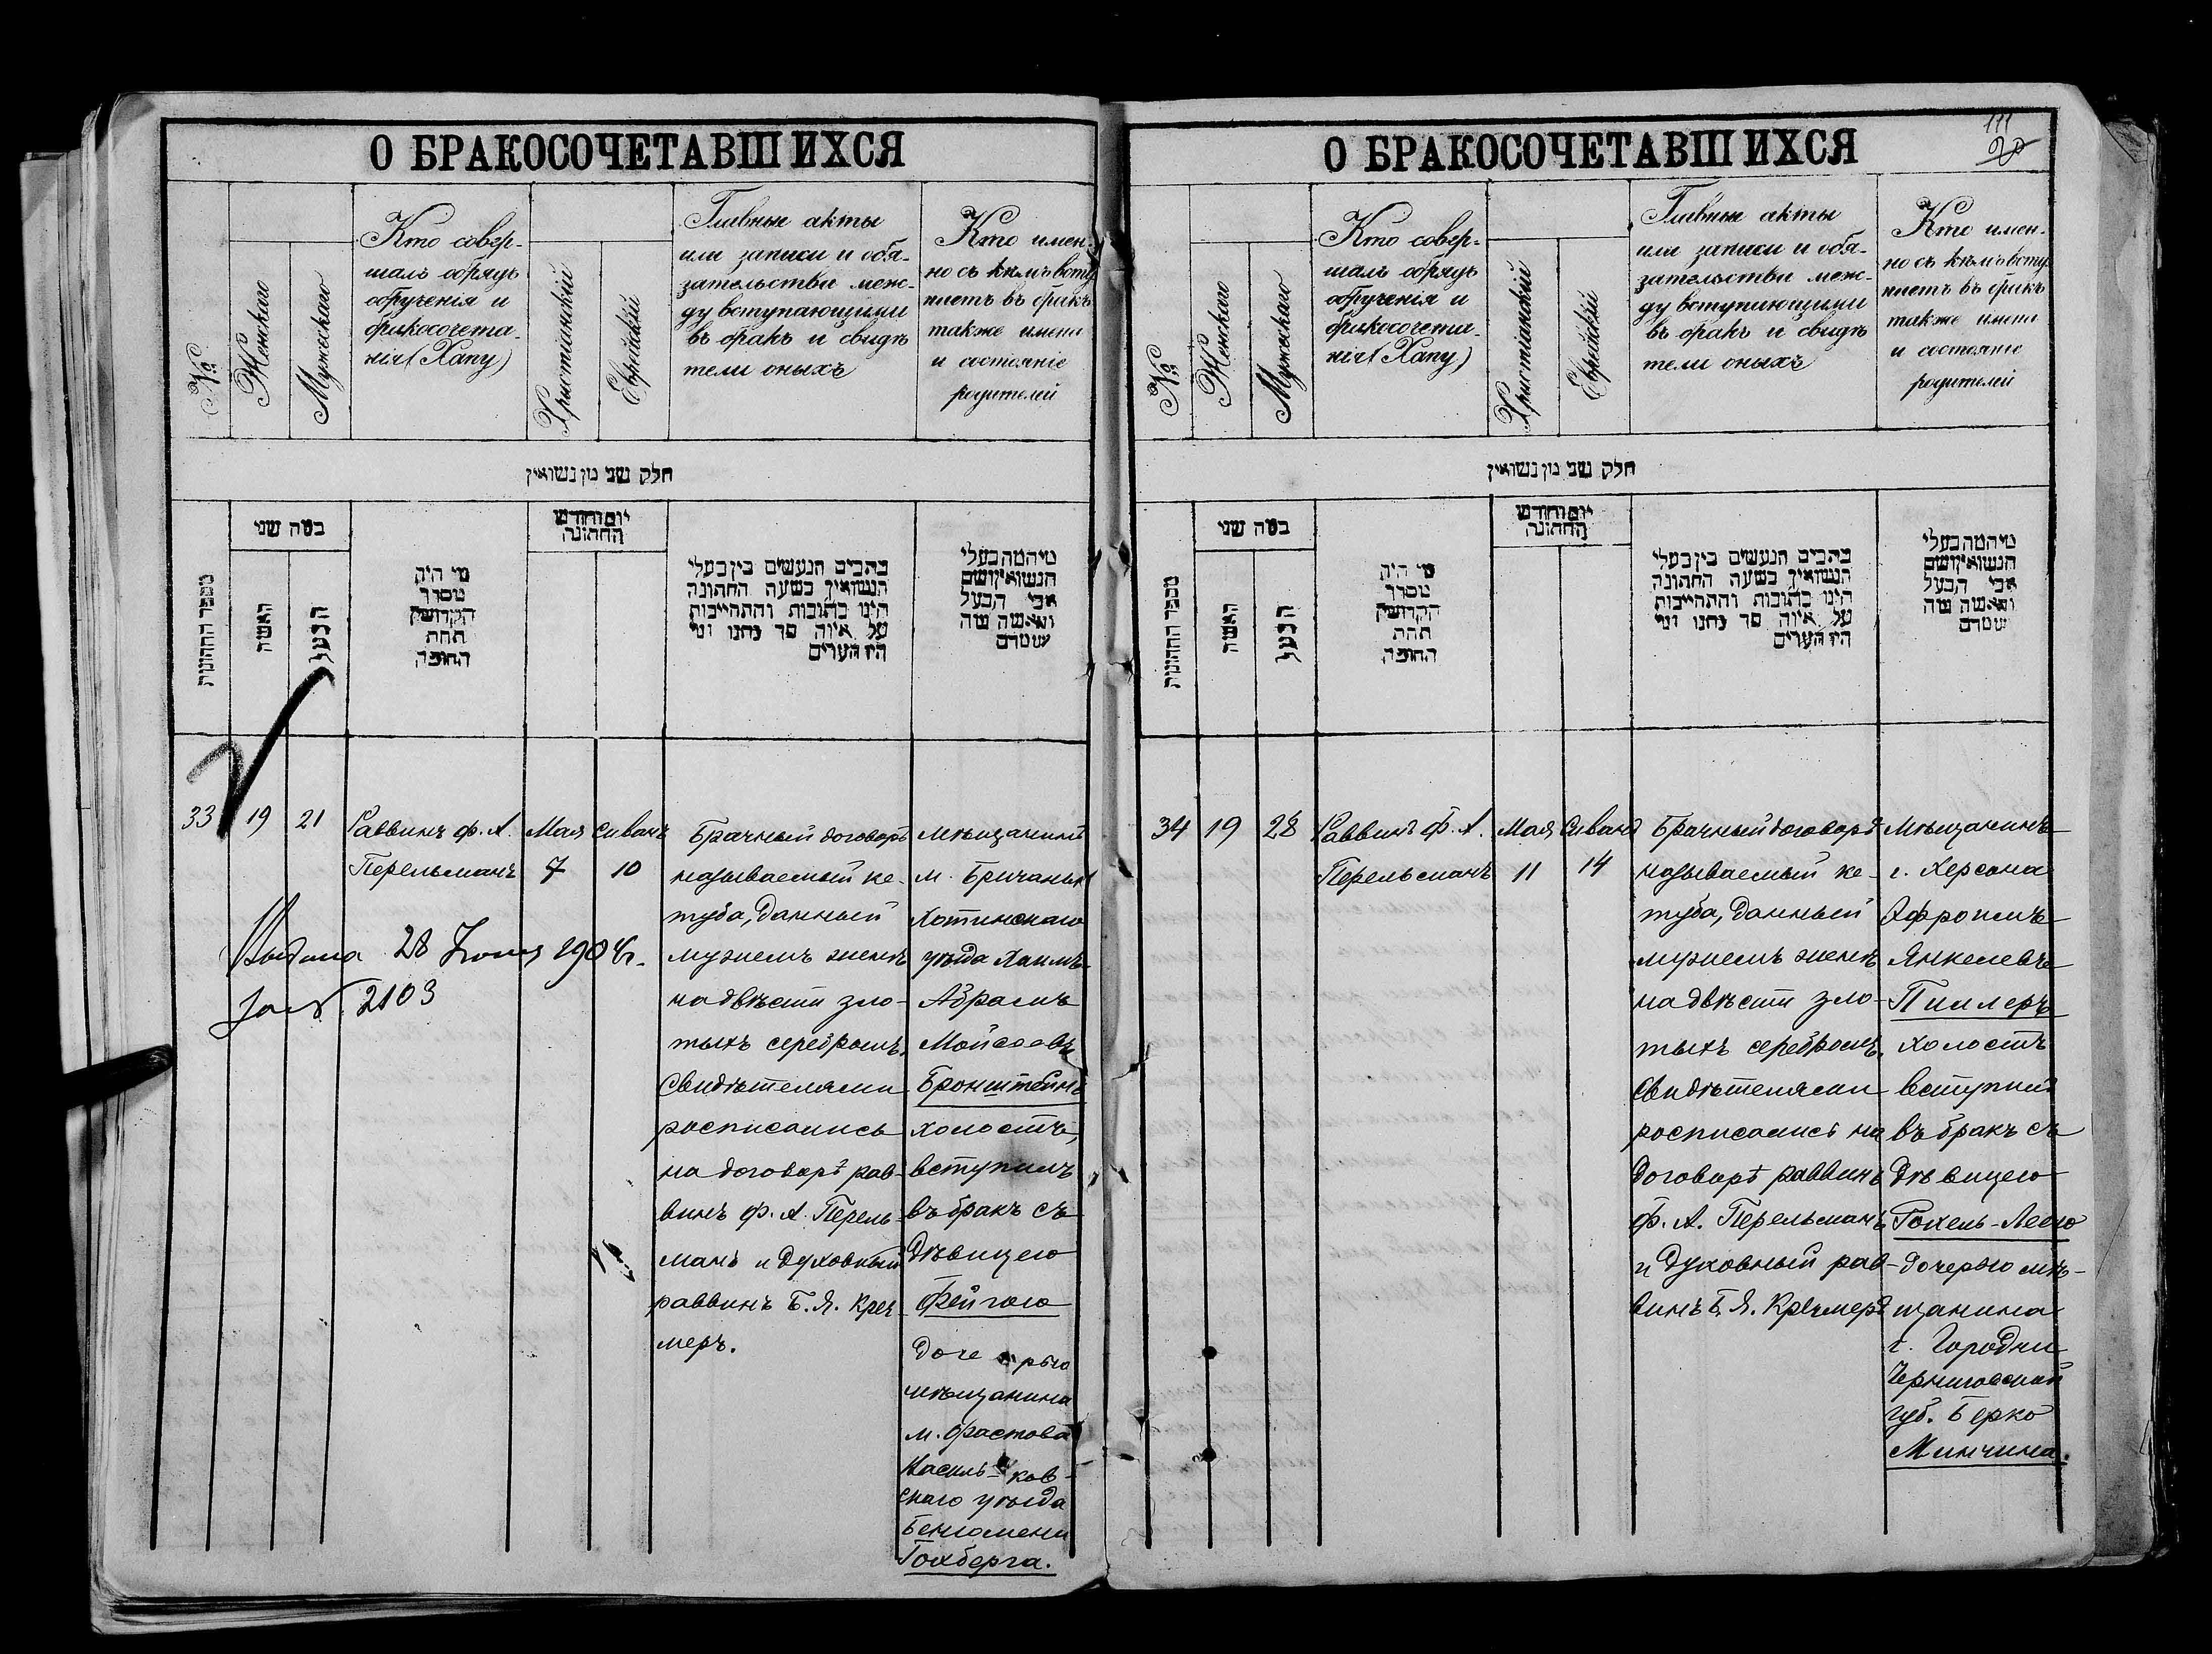 О БРАКОСОЧЕТАВШИХСЯ
№
Женскаго
Мужескаго
Кто совер-
шалъ обрядъ
обрученія и
бракосочета-
нія (Хапу)
Христіанскій
Еврейскій
Главные акты
или записи и обя-
зательства меж-
ду вступающими
въ бракъ и свидѣ
тели оныхъ
Кто имен-
но съ кѣмъ всту
паетъ въ бракъ
также имена
и состояніе
родителей
חלק שני מן נשואין
מספר החתונות
במה שני
האשה
הבעל
מי היה
מסדר
הקדושין
תחת
החופה
יום וחודש
החתונה
כתבים הנעשים בין בעלי
הנשואין בשעה החתונה
היינו כתובות והתחייבות
על איזה סך נתנו ומי
היו העדים
מי המה בעלי
הנשואין ושם
אבי הבעל
והאשה מה
שמדם
33
19
21
Раввинъ Ф. А.
Перельманъ
Мая
7
Сиванъ
10
Брачный договоръ
называемый ке-
туба, данный
мужемъ женѣ
на двѣсти зло-
тыхъ серебромъ.
Свидѣтелями
росписались
на договорѣ рав-
винъ Ф. А. Перель-
манъ и духовный
раввинъ Б. Я. Креч-
меръ.
Мѣщанинъ
м. Бричаны
Хотинскаго
уѣзда Хаимъ-
Абрамъ
Мойсеевъ
Бронштейнъ
холостъ,
вступилъ
въ бракъ съ
дѣвицею
Фейгою
дочерью
мѣщанина
м. Фастова
Василь-ков-
скаго уѣзда
Беніомена
Гохберга.
Выдана 28 Іюня 1904г.
за № 2103
О БРАКОСОЧЕТАВШИХСЯ
111
20
№
Женскаго
Мужескаго
Кто совер-
шалъ обрядъ
обрученія и
бракосочета-
нія (Хапу)
Христіанскій
Еврейскій
Главные акты
или записи и обя-
зательства меж-
ду вступающими
въ бракъ и свидѣ
тели оныхъ
Кто имен-
но съ кѣмъ всту
паетъ въ бракъ
также имена
и состояніе
родителей
חלק שני מן נשואין
מספר החתונות
במה שני
האשה
הבעל
מי היה
מסדר
הקדושין
תחת
החופה
יום וחודש
החתונה
כתבים הנעשים בין בעלי
הנשואין בשעה החתונה
היינו כתובות והתחייבות
על איזה סך נתנו ומי
היו העדים
מי המה בעלי
הנשואין ושם
אבי הבעל
והאשה מה
שמדם
34
19
28
Раввинъ Ф. А.
Перельманъ
Мая
11
Сиванъ
14
Брачный договоръ
называемый ке-
туба, данный
мужемъ женѣ
на двѣсти зло-
тыхъ серебромъ.
Свидѣтелями
росписались на
договорѣ раввинъ
Ф. А. Перельманъ
и духовный рав-
винъ Б. Я. Кречмеръ
Мѣщанинъ
г. Херсона
Эфроимъ
Янкелевъ
Пиллеръ
холостъ
вступилъ
въ бракъ съ
дѣвицею
Гохель-Леею
дочерью мѣ-
щанина
г. Городни
Черниговской
губ. Берко
Минчина.